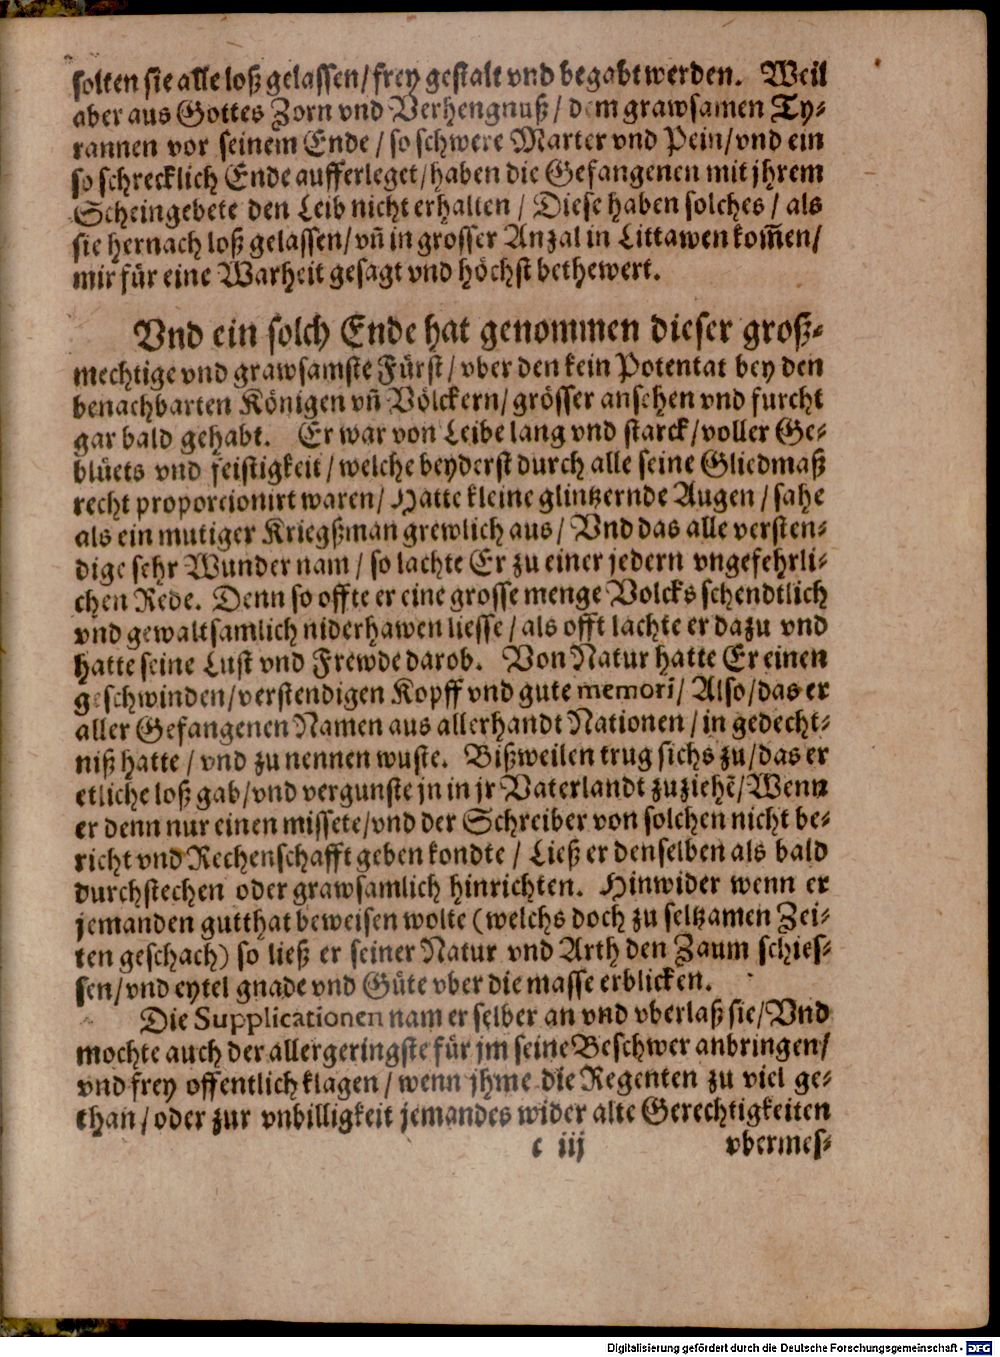 solten sie alle loß gelassen/frey gestalt vnd begabt werden. Weil
aber aus Gottes Zorn vnd Verhengnuß/ dem grawsamen Ty-
rannen vor seinem Ende/ so schwere Marter vnd Pein/vnd ein
so schrecklich Ende aufferleget/haben die Gefangenen mit jhrem
Scheingebete den Leib nicht erhalten/ Diese haben solches/ als
sie hernach loß gelassen/vn̄ in grosser Anzal in Littawen kom̄en/
mir für eine Warheit gesagt vnd höchst bethewert.
Vnd ein solch Ende hat genommen dieser groß-
mechtige vnd grawsamste Fürst/ vber den kein Potentat bey den
benachbarten Königen vn̄ Völckern/ grösser ansehen vnd furcht
gar bald gehabt. Er war von Leibe lang vnd starck/voller Ge-
blüets vnd feistigkeit/welche beyderst durch alle seine Gliedmaß
recht proporcionirt waren/ Hatte kleine glintzernde Augen/ sahe
als ein mutiger Kriegßman grewlich aus/ Vnd das alle versten-
dige sehr Wunder nam/ so lachte Er zu einer jedern vngefehrli-
chen Rede. Denn so offte er eine grosse menge Volcks schendtlich
vnd gewaltsamlich niderhawen liesse/als offt lachte er dazu vnd
hatte seine Lust vnd Frewde darob. Von Natur hatte Er einen
geschwinden/verstendigen Kopff vnd gute memori/ Also/das er
aller Gefangenen Namen aus allerhandt Nationen/in gedecht-
niß hatte/ vnd zu nennen wuste. Bißweilen trug sichs zu/das er
etliche loß gab/vnd vergunste jn in jr Vaterlandt zuziehē/Wenn
er denn nur einen missete/vnd der Schreiber von solchen nicht be-
richt vnd Rechenschafft geben kondte/ Ließ er denselben als bald
durchstechen oder grawsamlich hinrichten. Hinwider wenn er
jemanden gutthat beweisen wolte (welchs doch zu seltzamen Zei-
ten geschach) so ließ er seiner Natur vnd Arth den Zaum schies-
sen/vnd eytel gnade vnd Güte vber die masse erblicken.
Die Supplicationen nam er selber an vnd vberlaß sie/Vnd
mochte auch der allergeringste für jm seine Beschwer anbringen/
vnd frey offentlich klagen/wenn jhme die Regenten zu viel ge-
than/oder zur vnbilligkeit jemandes wider alte Gerechtigkeiten
c iij vbermes-
Digitalisierung gefördert durch die Deutsche Forschungsgemeinschaft - DFG